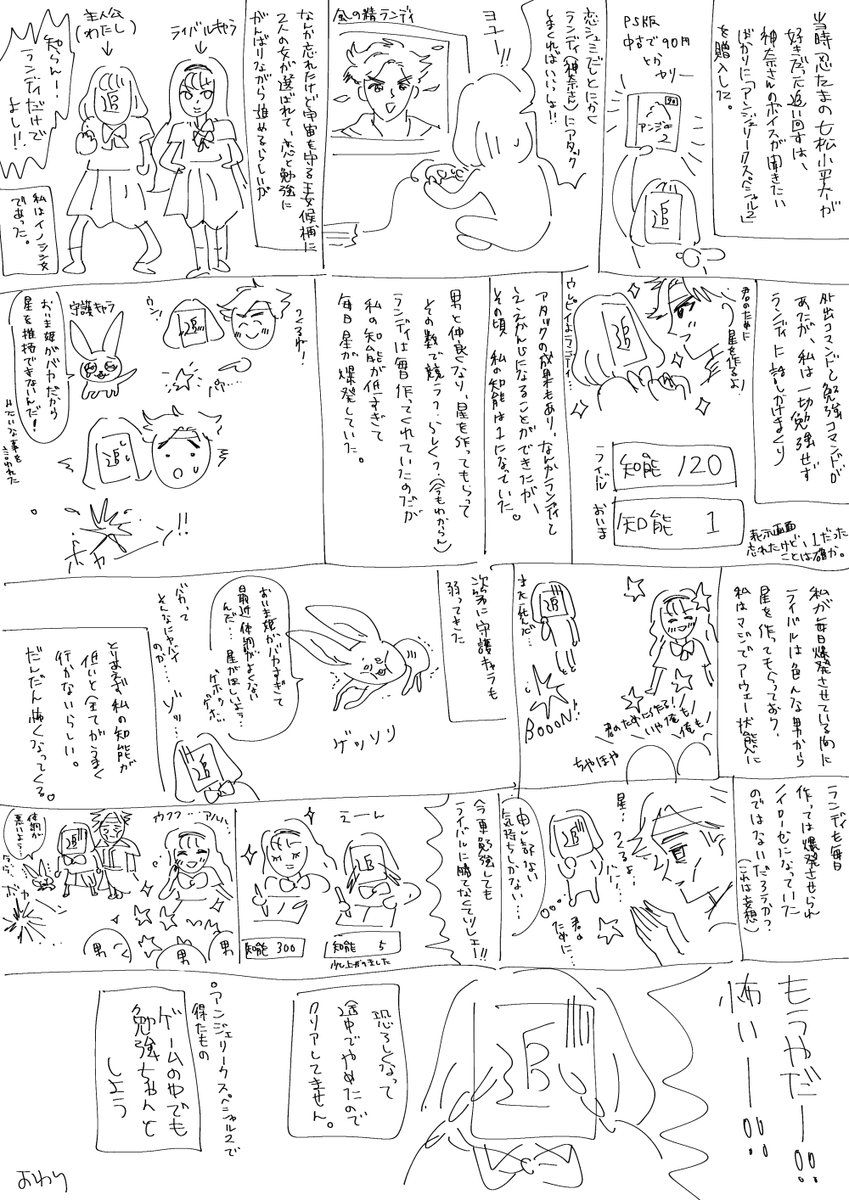 当時忍たまの七松小平太が
好きだった追い回すは、
神奈さんのボイスが聞きたい
ばかりに「アンジェリークスペシャル2」
を購入した。
PS版
中古で90円
とか
セリー
90
アンジェ
2
追
ヨユー!!
恋シュミだしとにかく
ランディ(神奈さん)にアタック
しまくればいいじょ!!
風の精ランディ
なんか忘れたけど宇宙を守る王女候補に
2人の女が選ばれて、恋と勉強に
がんばりながら進めるらしいが
ライバルキャラ
主人公
(わたし)
追
知らんー!
ランディだけで
よし!!
私はイノシシ女
であった。
外出コマンドと勉強コマンドが
あったが、私は一切勉強せず
ランディに話しかけまくり
君のために
星を作るよ
追
ライバル
知能 120
おいま
知能 1
表示画面
忘れたけど、1だった
ことは確か。
アタックの成果もあり、なんかランディと
ええかんじになることができたが、
その頃 私の知能は1になっていた。
男と仲良くなり、星を作ってもらって
その数で競う?らしく?(今もわからん)
ランディは毎日作ってくれていたのだが
私の知能が低すぎて
毎日星が爆発していた。
つくるね!
ウン!
追
パァ…
追
ボカーン!!
守護キャラ
おいま姫がバカだから
星を維持できないんだ!
みたいな事を
言われた
私が毎日爆発させている間に
ライバルは色んな男から
星を作ってもらっており、
私はマジでアウェー状態に
君のために作る!
いや俺も!
俺も!
ちやほや
追
また死んだ…
BOOON!
次第に守護キャラも
弱ってきた
ゲッソリ
おいま姫がバカすぎて
最近体調がよくない
んだ…星がほしいよう…
ゲホゲホ
ゲホ…
バカって
そんなにヤバイ
のか…
ゾッ…
追
とりあえず私の知能が
低いと全てがうまく
行かないらしい。
だんだん怖くなってくる。
ランディも毎日
作っては爆発させられ
ノイローゼになっていた
のではないだろうか?
(これは妄想)
星…つくるよ…
ハハ…
君の
ために…
追
申し訳ない
気持ちしかない…
今更勉強しても
ライバルに勝てなくてツレェー!!
えーん
追
知能 300
知能 5
少し上がりました
ウフフ…アハハ…
体調が
悪いよう…
追
ボカン
男
男
男
もうやだー!!
怖いー!!
追
恐ろしくなって
途中でやめたので
クリアしてません。
。アンジェリークスペシャル2で
得たもの
ゲームの中でも
勉強ちゃんと
しよう
おわり